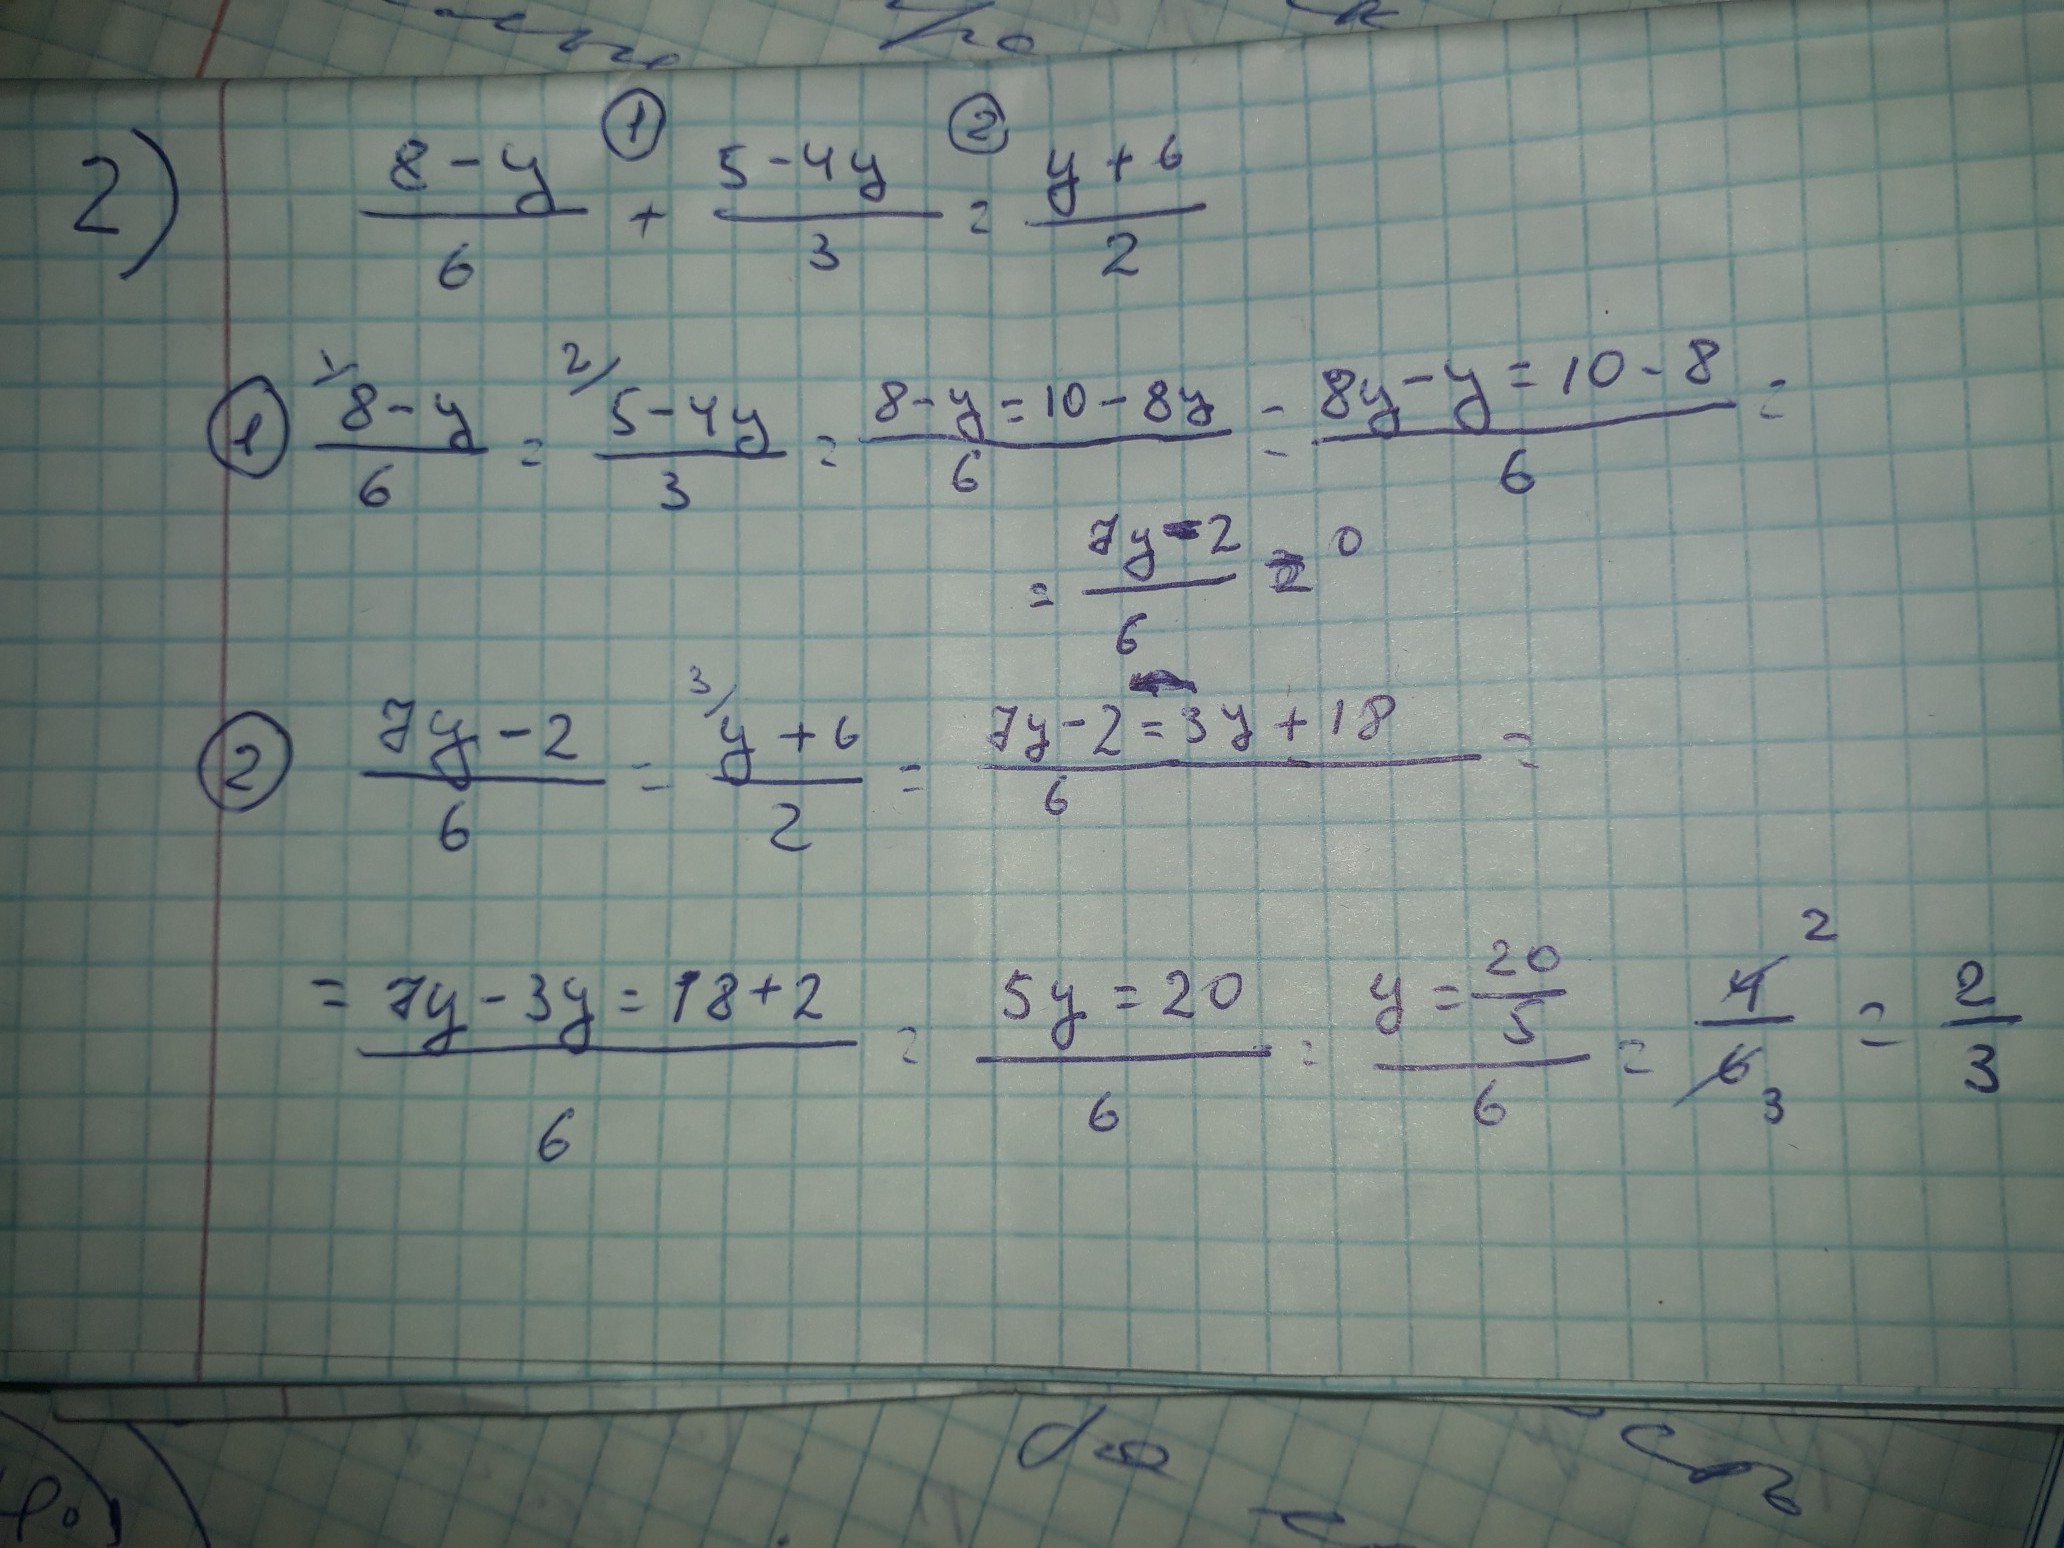 2) (8-y)/6 + (5-4y)/3 = (y+6)/2
① ②
① 1/ (8-y)/6 = 2/ (5-4y)/3 = (8-y=10-8y)/6 = (8y-y=10-8)/6 =
= (7y-2)/6 = 0
② (7y-2)/6 = 3/ (y+6)/2 = (7y-2=3y+18)/6 =
= (7y-3y=18+2)/6 = (5y=20)/6 = (y=20/5)/6 = 4/6 2 3 = 2/3